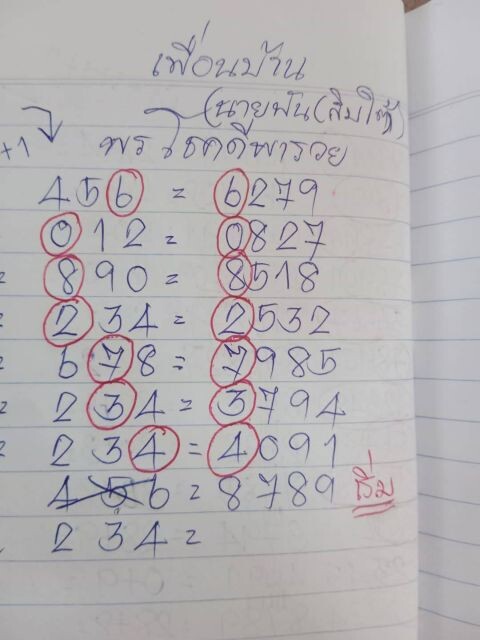 เพื่อนบ้าน
(นายพัน(สิมใต้)
+1 พรโชคดีพารวย
456 = 6279
012 = 0827
890 = 8518
234 = 2532
678 = 7985
234 = 3794
234 = 4091
456 = 8789 เริ่ม
234 =